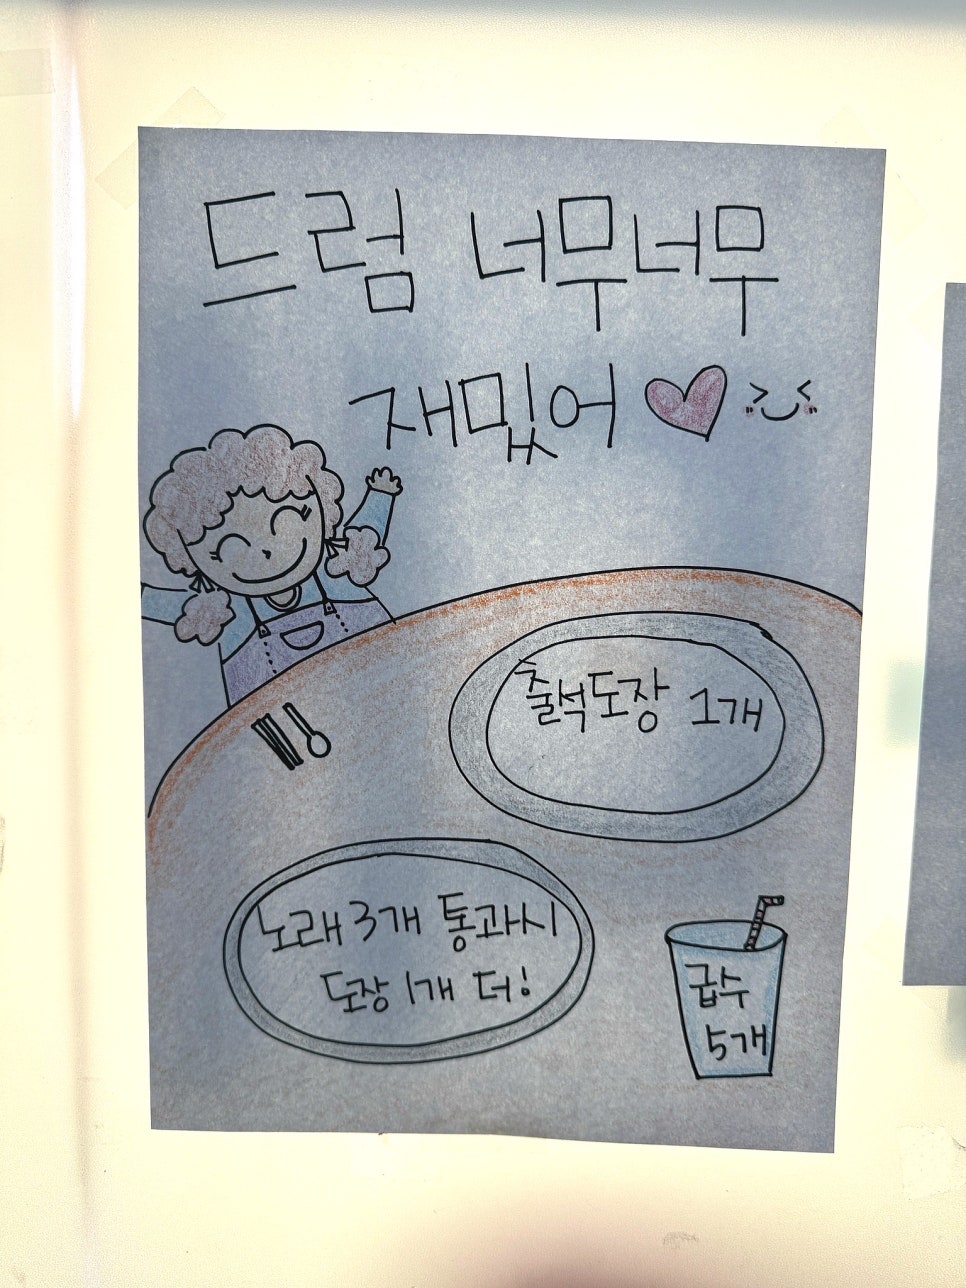 드럼 너무너무
재밌어
출석도장 1개
노래 3개 통과시
도장 1개 더!
급수
5개